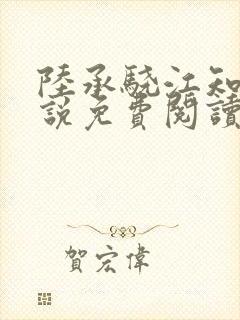 陸承驍江知
說免費閱讀
賀宏偉